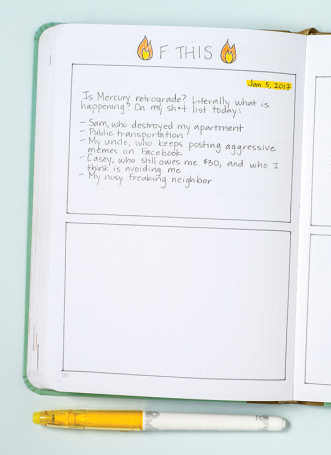 F THIS
Jan. 5, 2017
Is Mercury retrograde? Literally what is
happening? On my sh*t list today:
- Sam, who destroyed my apartment
- Public transportation
- My uncle, who keeps posting aggressive
memes on Facebook
- Casey, who still owes me $30, and who I
think is avoiding me
- My nosy freaking neighbor